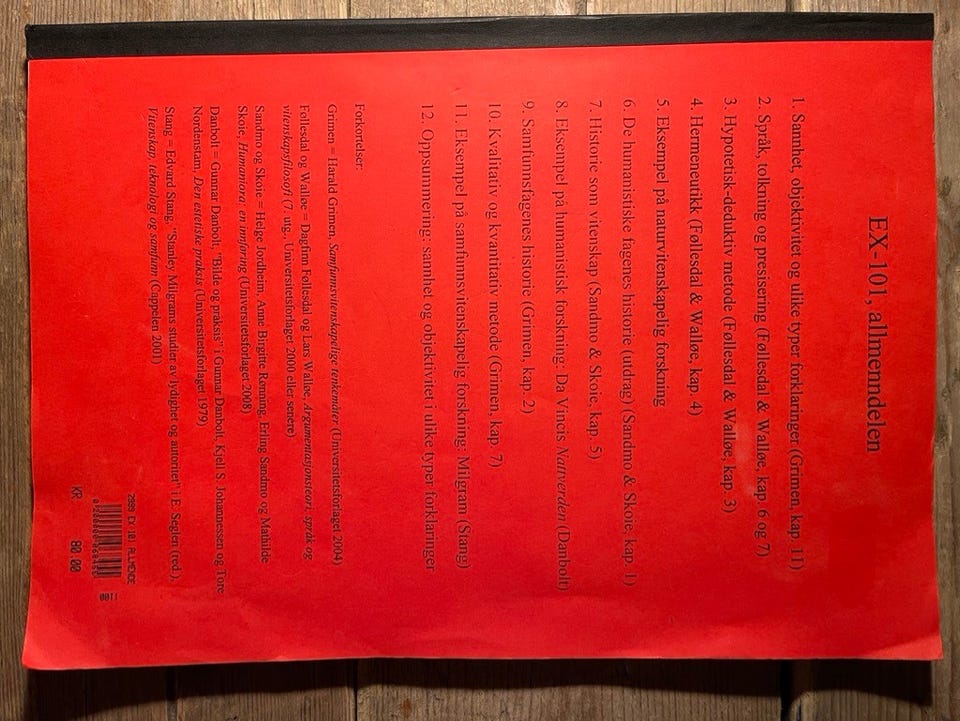 EX-101, allmenndelen
1. Sannhet, objektivitet og ulike typer forklaringer (Grimen, kap. 11)
2. Språk, tolkning og presisering (Føllesdal & Walløe, kap. 6 og 7)
3. Hypotetisk-deduktiv metode (Føllesdal & Walløe, kap. 3)
4. Hermeneutikk (Føllesdal & Walløe, kap. 4)
5. Eksempel på naturvitenskapelig forskning
6. De humanistiske fagenes historie (utdrag) (Sandmo & Skoie, kap. 1)
7. Historie som vitenskap (Sandmo & Skoie, kap. 5)
8. Eksempel på humanistisk forskning: Da Vincis Nattverden (Danbolt)
9. Samfunnsfagenes historie (Grimen, kap. 2)
10. Kvalitativ og kvantitativ metode (Grimen, kap. 7)
11. Eksempel på samfunnsvitenskapelig forskning: Milgram (Stang)
12. Oppsummering: sannhet og objektivitet i ulike typer forklaringer
Forkortelser:
Grimen = Harald Grimen, Samfunnsvitenskapelige tenkemåter (Universitetsforlaget 2004)
Føllesdal og Walløe = Dagfinn Føllesdal og Lars Walløe, Argumentasjonsteori, språk og
vitenskapsfilosofi (7. utg., Universitetsforlaget 2000 eller senere)
Sandmo og Skoie = Helge Jordheim, Anne Birgitte Rønning, Erling Sandmo og Mathilde
Skoie, Humaniora: en innføring (Universitetsforlaget 2008)
Danbolt = Gunnar Danbolt, "Bilde og praksis" i Gunnar Danbolt, Kjell S. Johannessen og Tore
Nordenstam, Den estetiske praksis (Universitetsforlaget 1979)
Stang = Edvard Stang, "Stanley Milgrams studier av lydighet og autoritet" i E. Seglen (red.),
Vitenskap, teknologi og samfunn (Cappelen 2001)
2009 EX 101 ALLMENDE
0011
KR 80.00